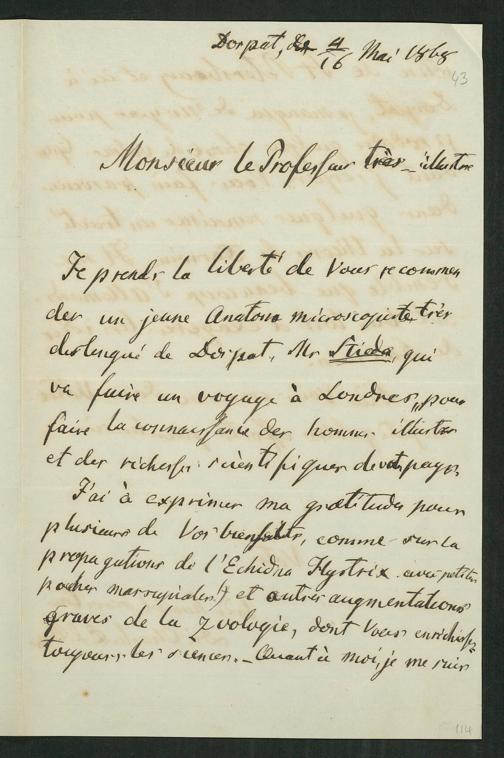 Dorpat, der 4/16 Mai 1868
43
Monsieur le Professeur très-illustre
Je prends la liberté de Vous recomman
der un jeune Anatom microscopiste très
distingué de Dorpat, Mr Stieda, qui
va faire un voyage à Londres, pour
faire la connaissance des hommes illustres
et des richesses scientifiques de votre pays.
J'ai à exprimer ma gratitude pour
plusieurs de Vos bienfaits, comme sur la
propagations de l'Echidna Hystrix avec petites
poches marsupiales!) et autres augmentations
graves de la zoologie, dont Vous enrichissez
toujours les sciences. – Quant à moi, je me suis
114